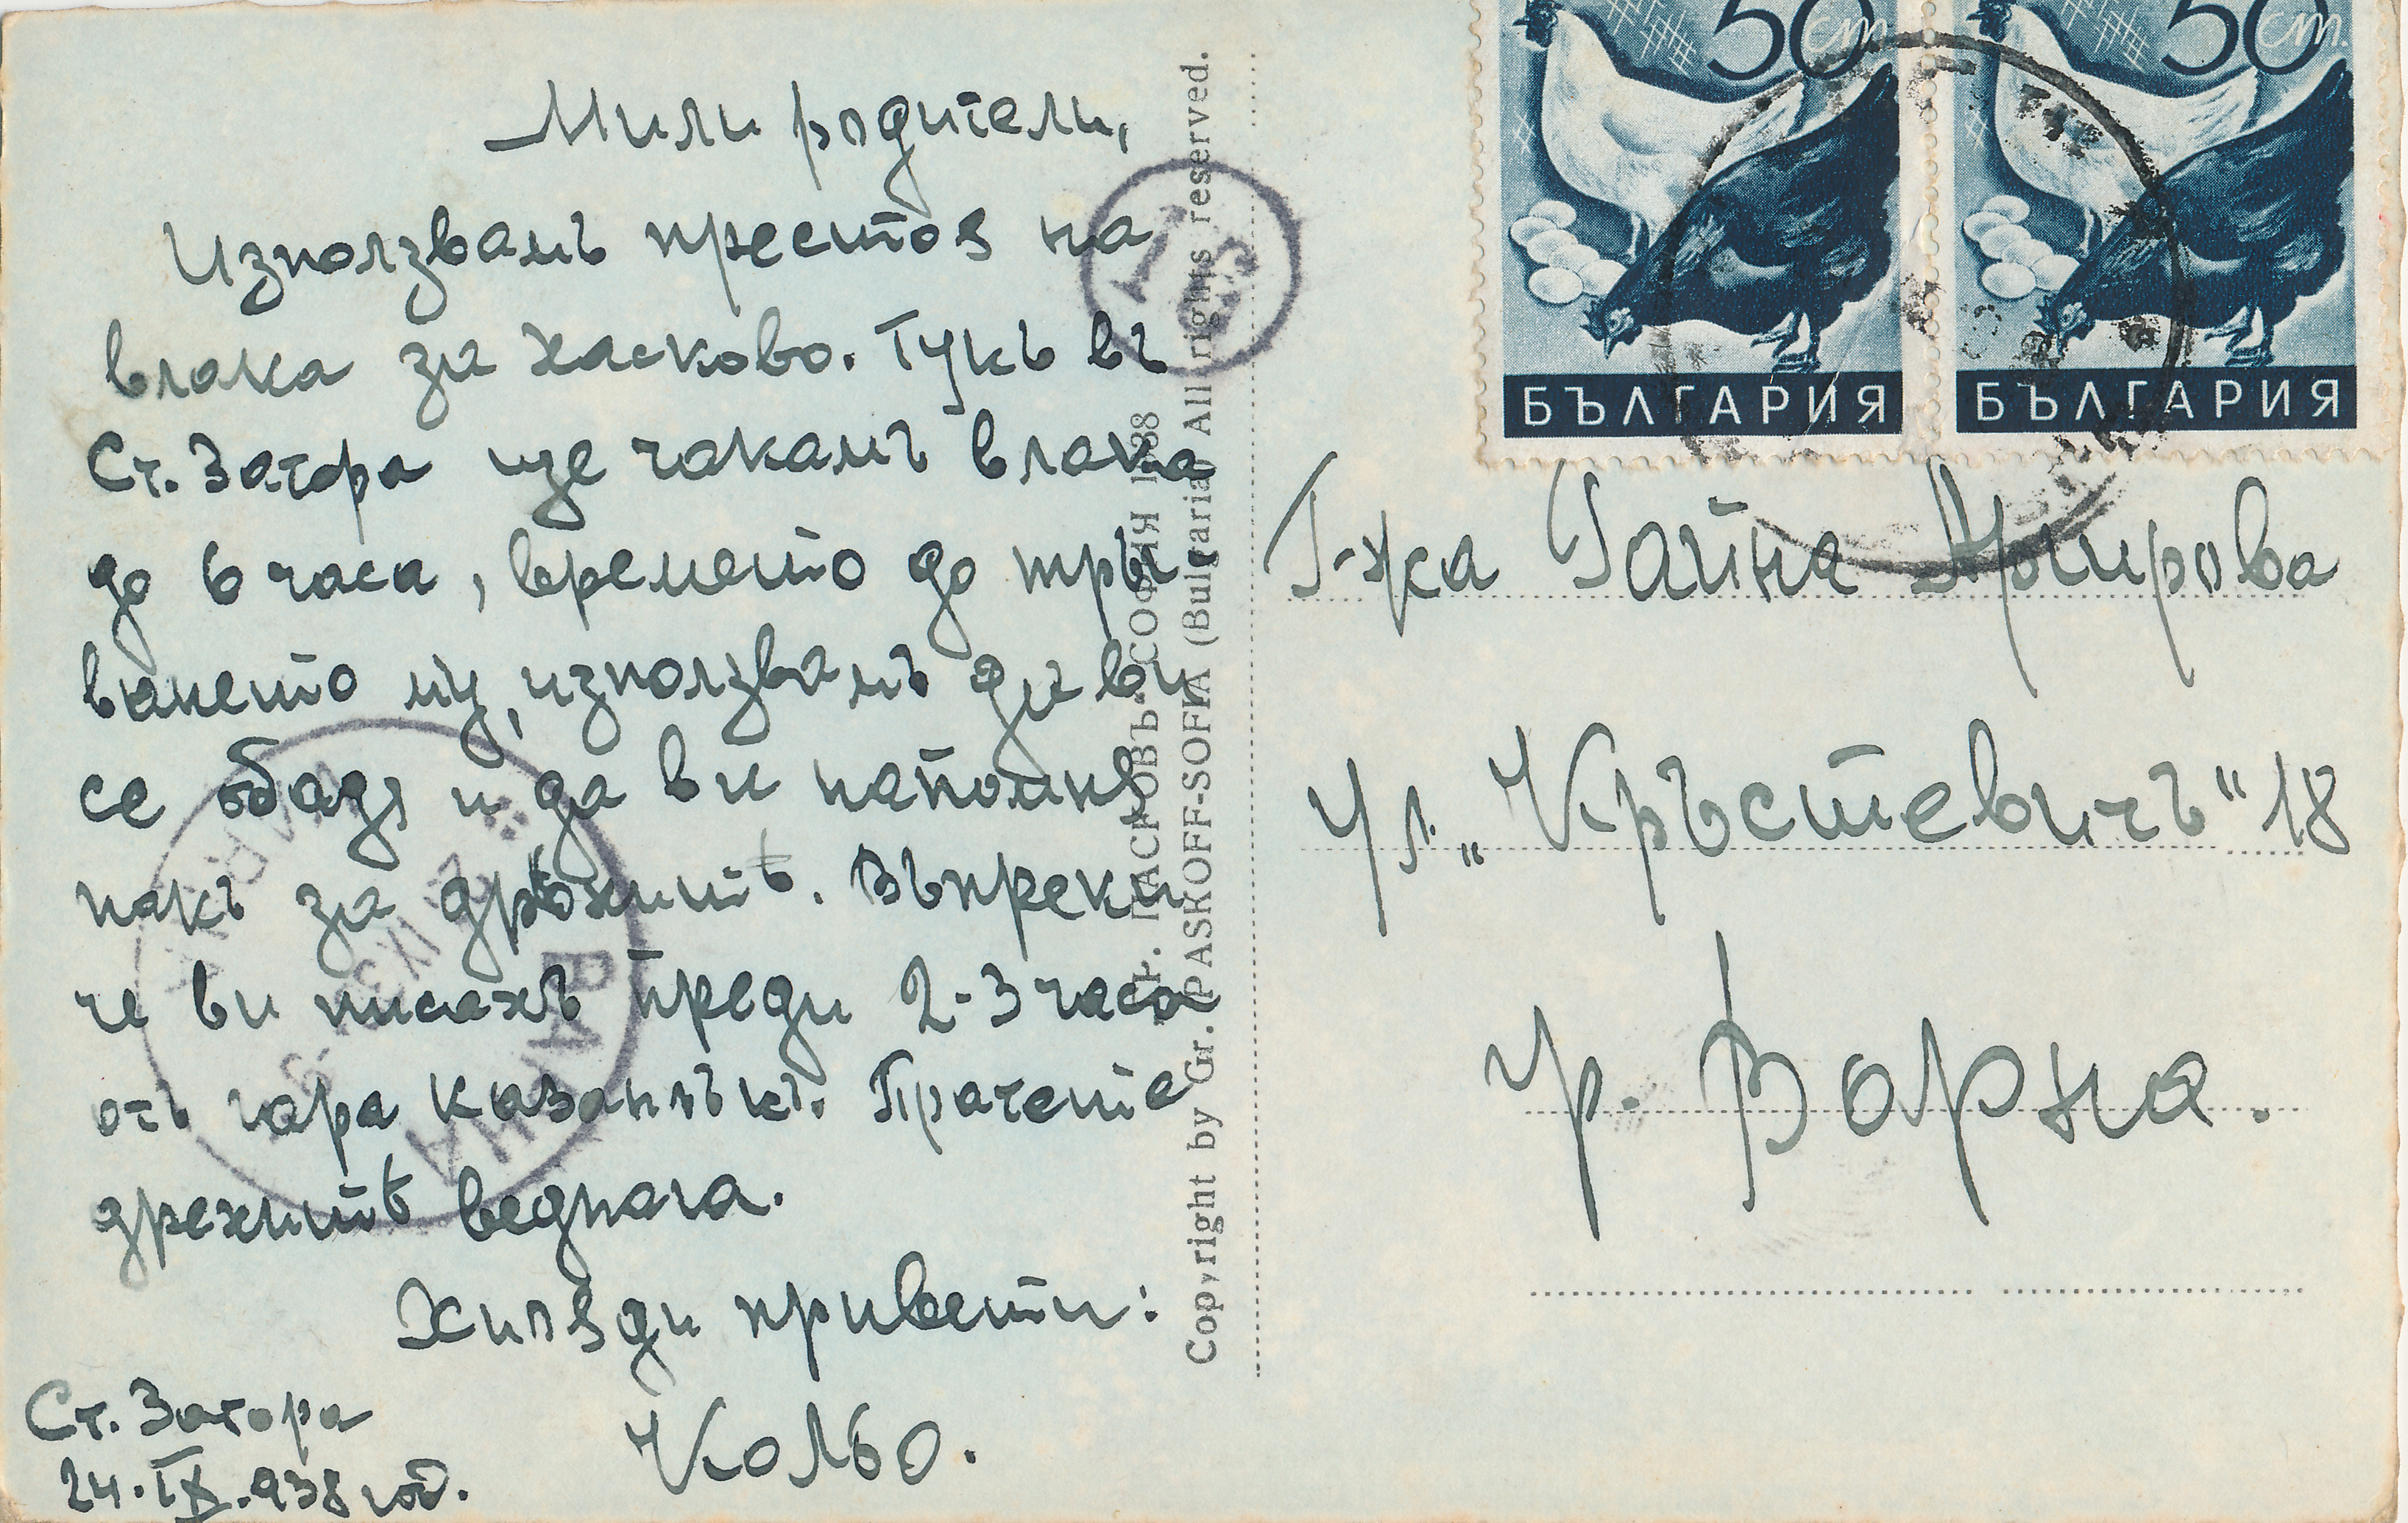 Мили родители,
Използвамъ престоя на
влака за Хасково. Тукъ въ
Ст. Загора ще чакамъ влака
до 6 часа, времето до тръг-
ването му, използвамъ да ви
се обадя и да ви напомня
пакъ за дрѣхитѣ. Въпреки
че ви писахъ преди 2-3 часа
отъ гара Казанлъкъ. Пратете
дрехитѣ веднага.
Хиляди привети:
Кольо.
Ст. Загора
24.IX.938 год.
ГР. ПАСКОВЪ-СОФИЯ 1938
Copyright by Gr. PASKOFF-SOFIA (Bulgaria) All rights reserved.
Т
25
ВАРНА
VARNA
50 ст.
БЪЛГАРИЯ
50 ст.
БЪЛГАРИЯ
Г-жа Гайна
ул. „Кръстевичъ" 18
гр. Варна.